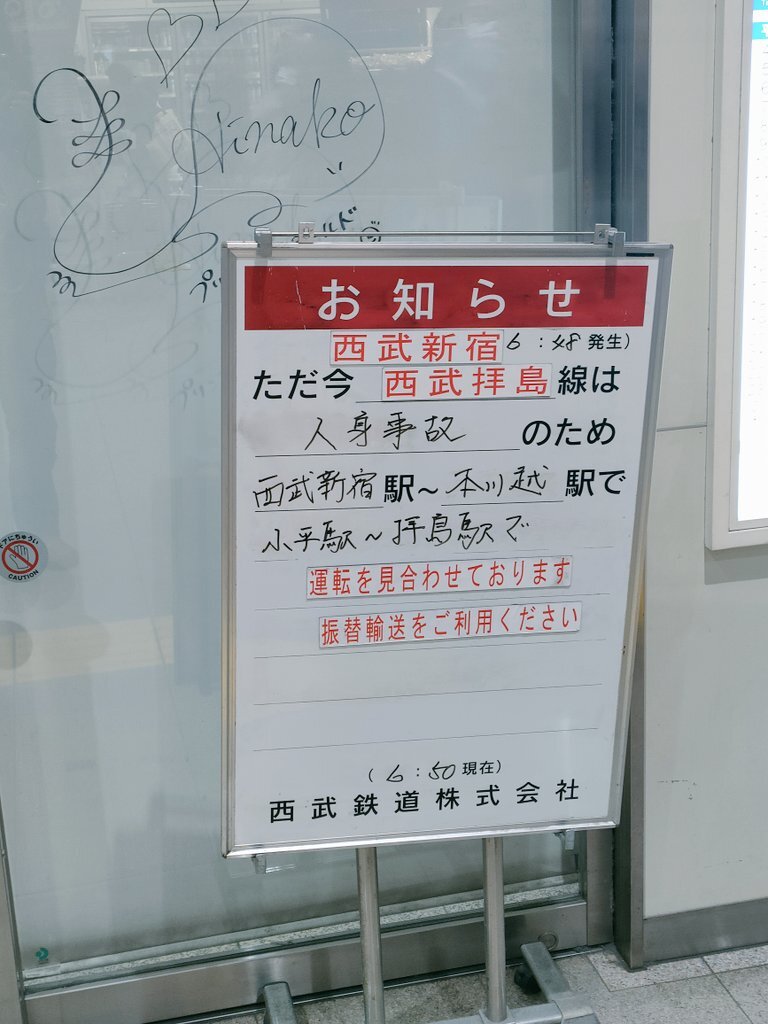 Hinako
お知らせ
西武新宿 6:48発生)
ただ今 西武拝島線は
人身事故のため
西武新宿駅～本川越駅で
小平駅～拝島駅で
運転を見合わせております
振替輸送をご利用ください
(6:50現在)
西武鉄道株式会社
ドアにちゅうい
CAUTION